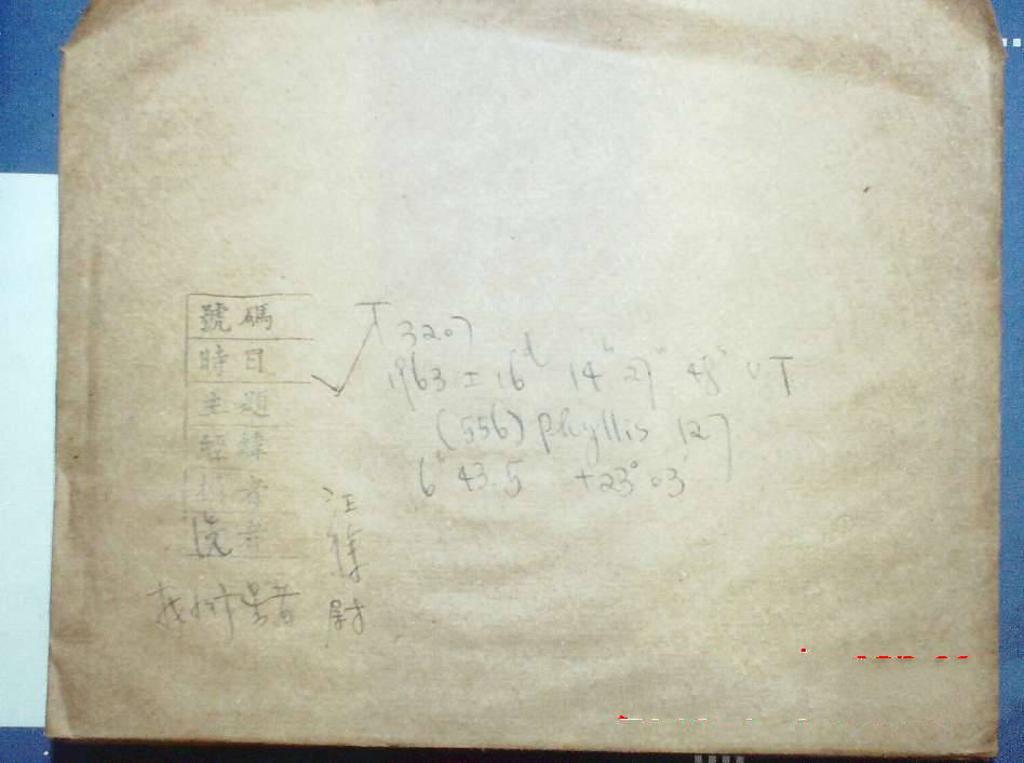 號碼 T 3207
時日 1963 I 16ᵈ 14ʰ 27ᵐ 48ˢ UT
主題 (556) Phyllis 127
經緯 6ʰ 43.5 +23° 03'
者 汪
徐
尉